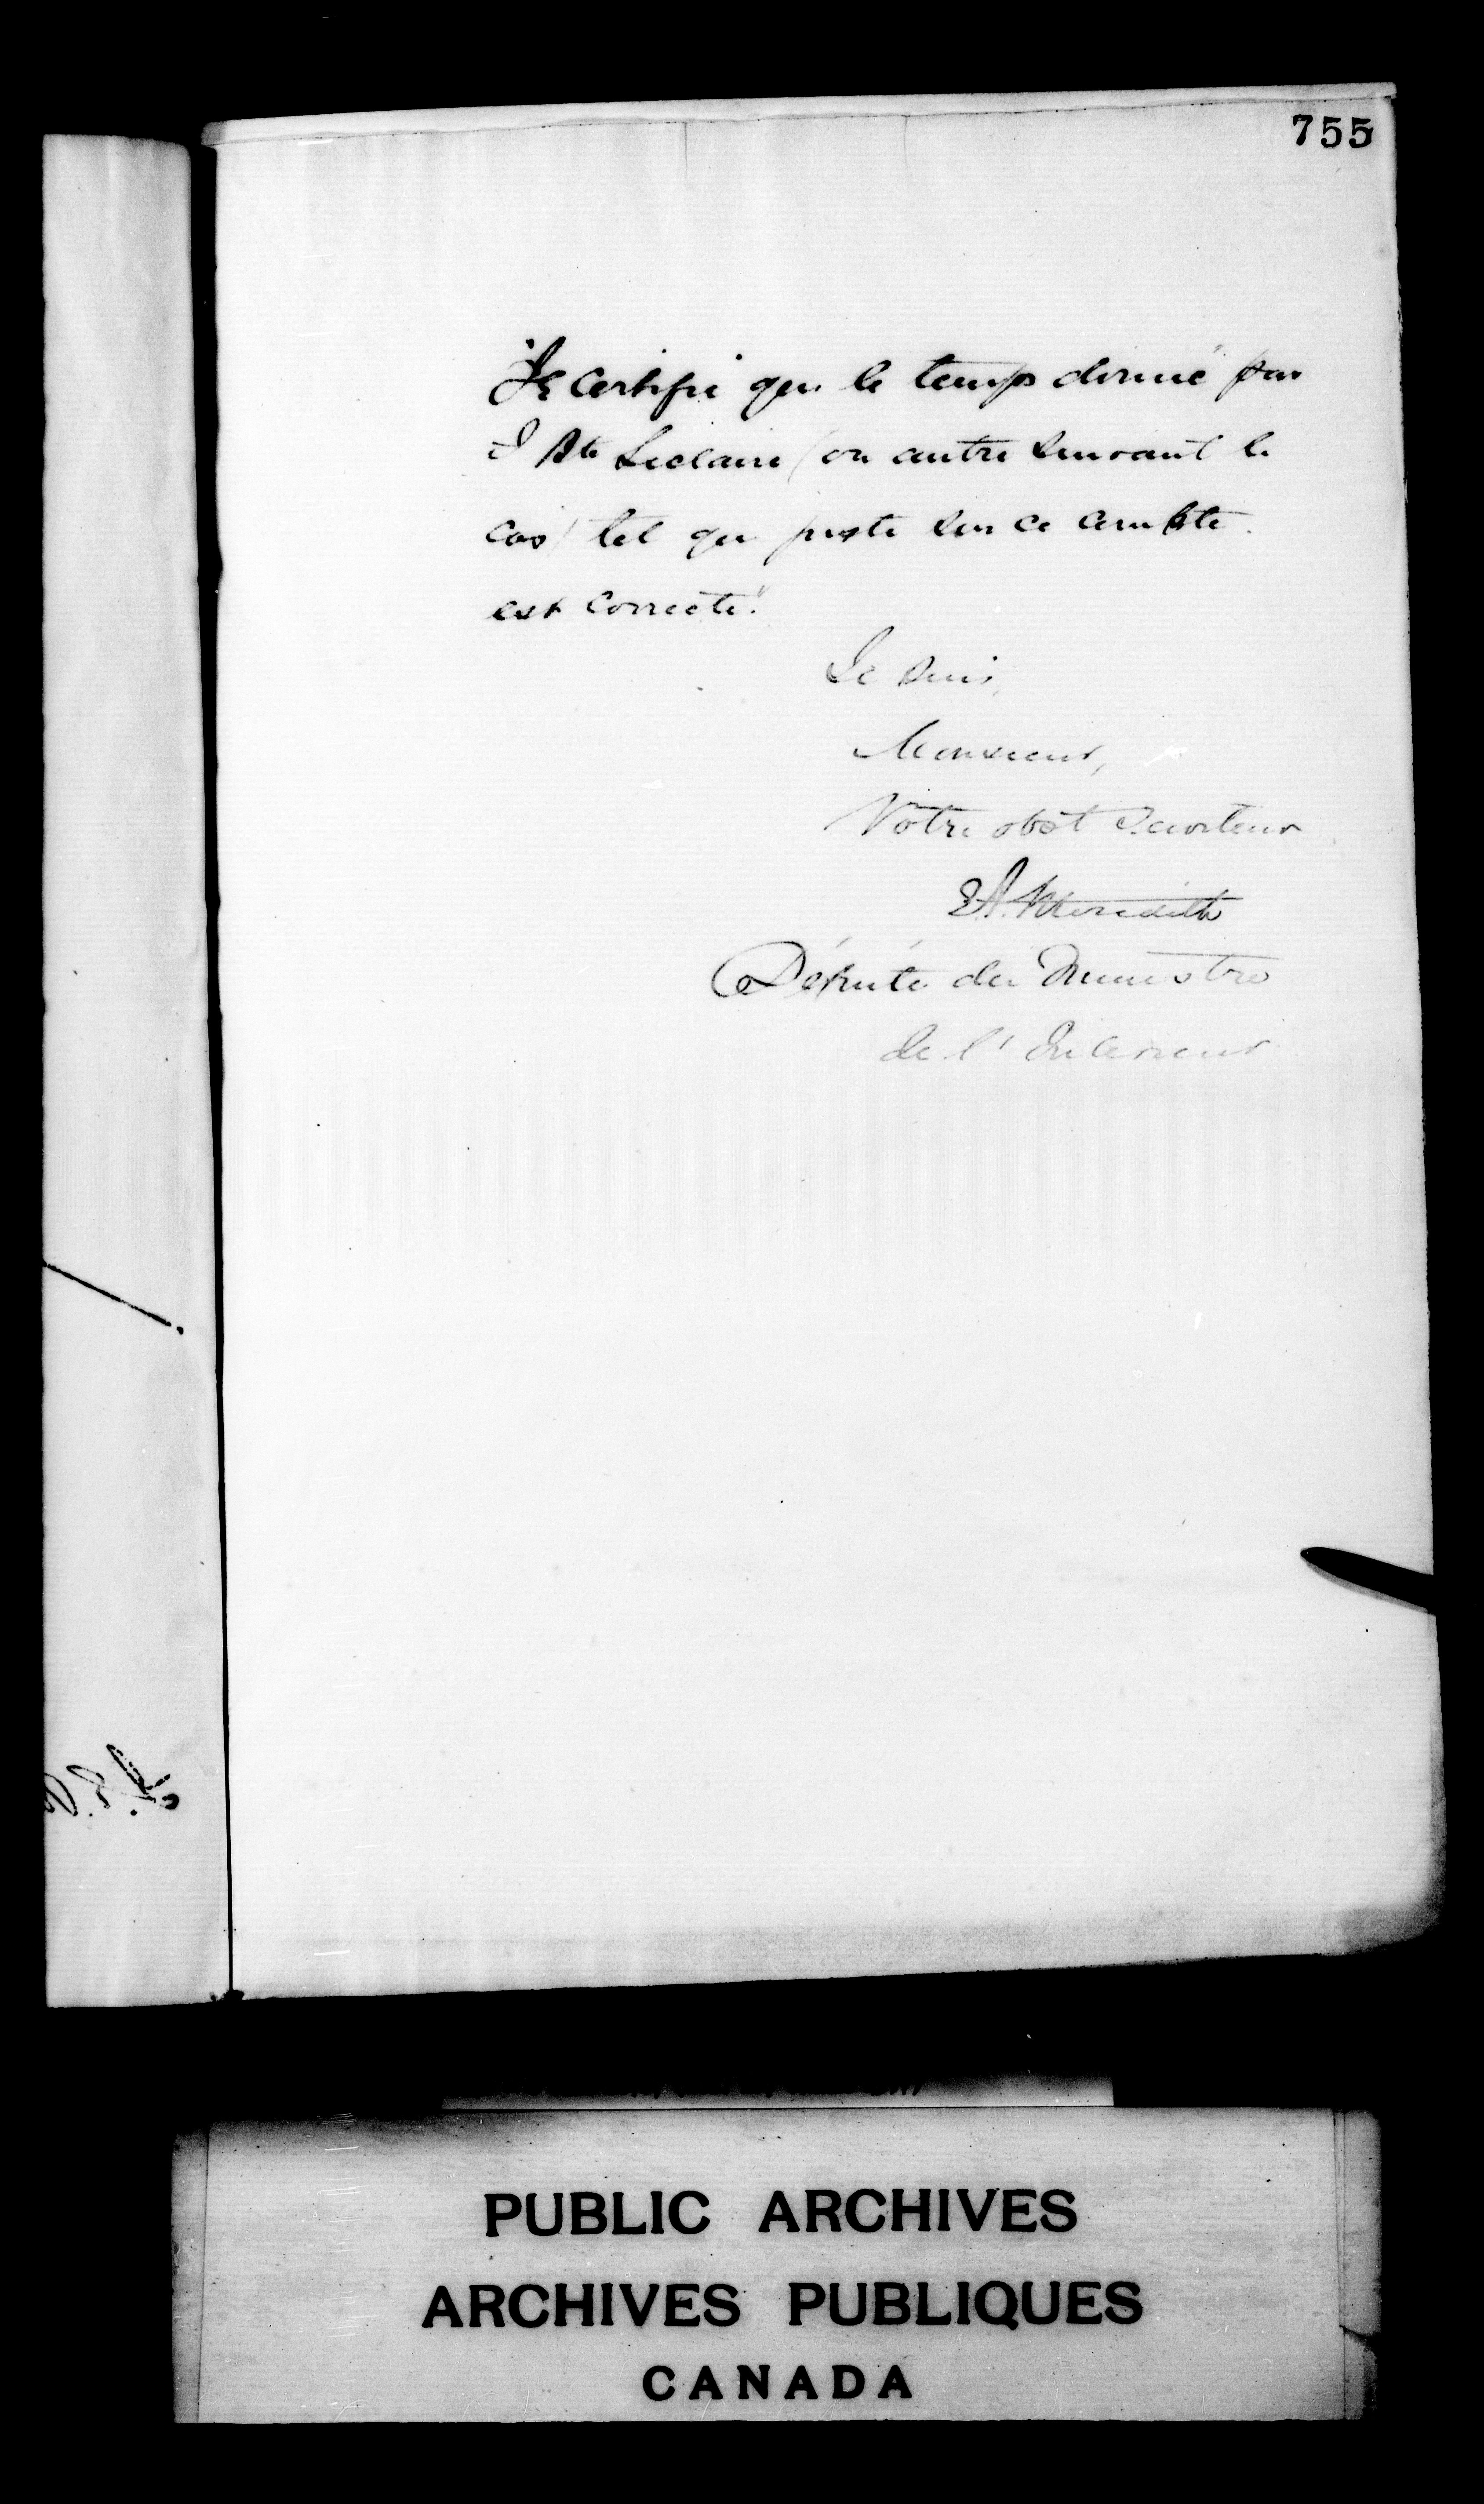 755
"Je certifie que le temps donné par
J Bte Leclaire (ou autre suivant le
cas) tel que porté sur ce compte
est correcte."
Je suis,
Monsieur,
Votre obét Serviteur
E A. Meredith
Député du Ministre
de l'Intérieur
PUBLIC ARCHIVES
ARCHIVES PUBLIQUES
CANADA